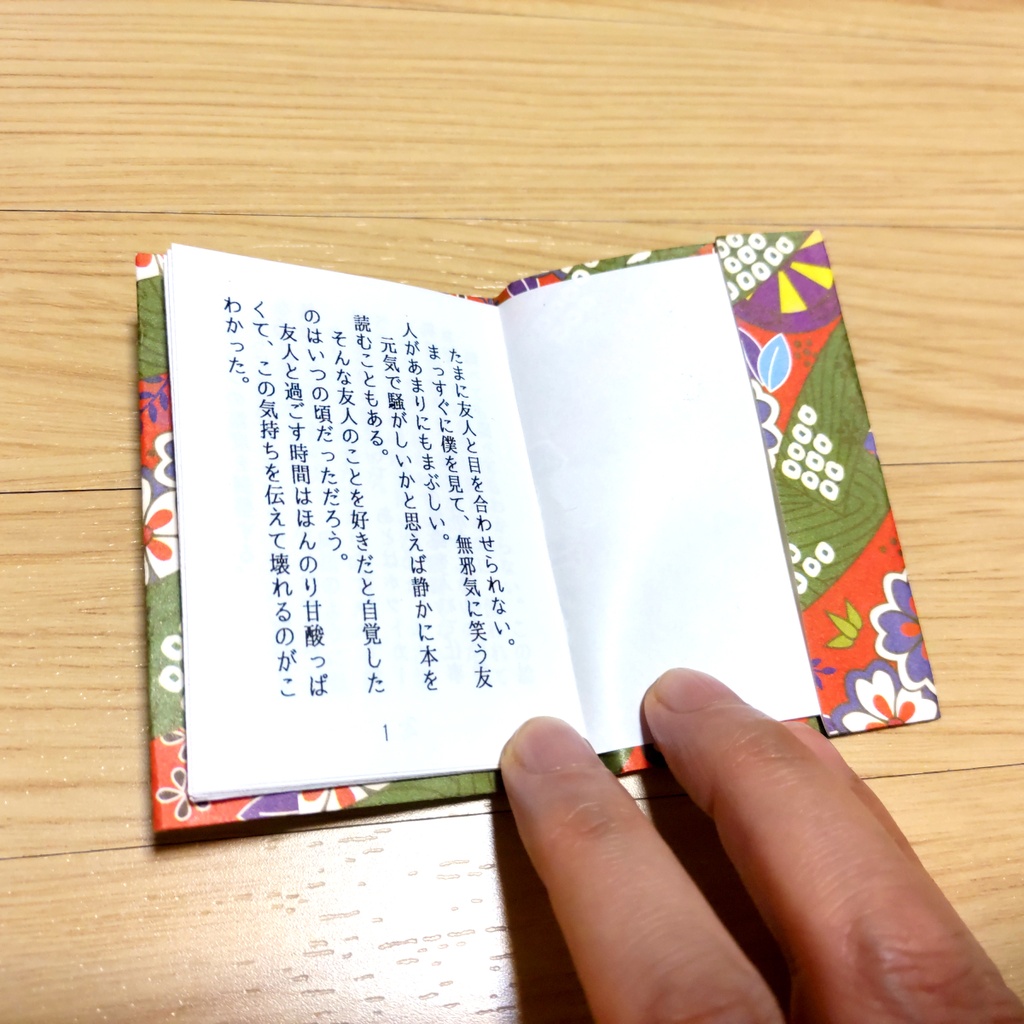 たまに友人と目を合わせられない。
まっすぐに僕を見て、無邪気に笑う友
人があまりにもまぶしい。
元気で騒がしいかと思えば静かに本を
読むこともある。
そんな友人のことを好きだと自覚した
のはいつの頃だっただろう。
友人と過ごす時間はほんのり甘酸っぱ
くて、この気持ちを伝えて壊れるのがこ
わかった。
1